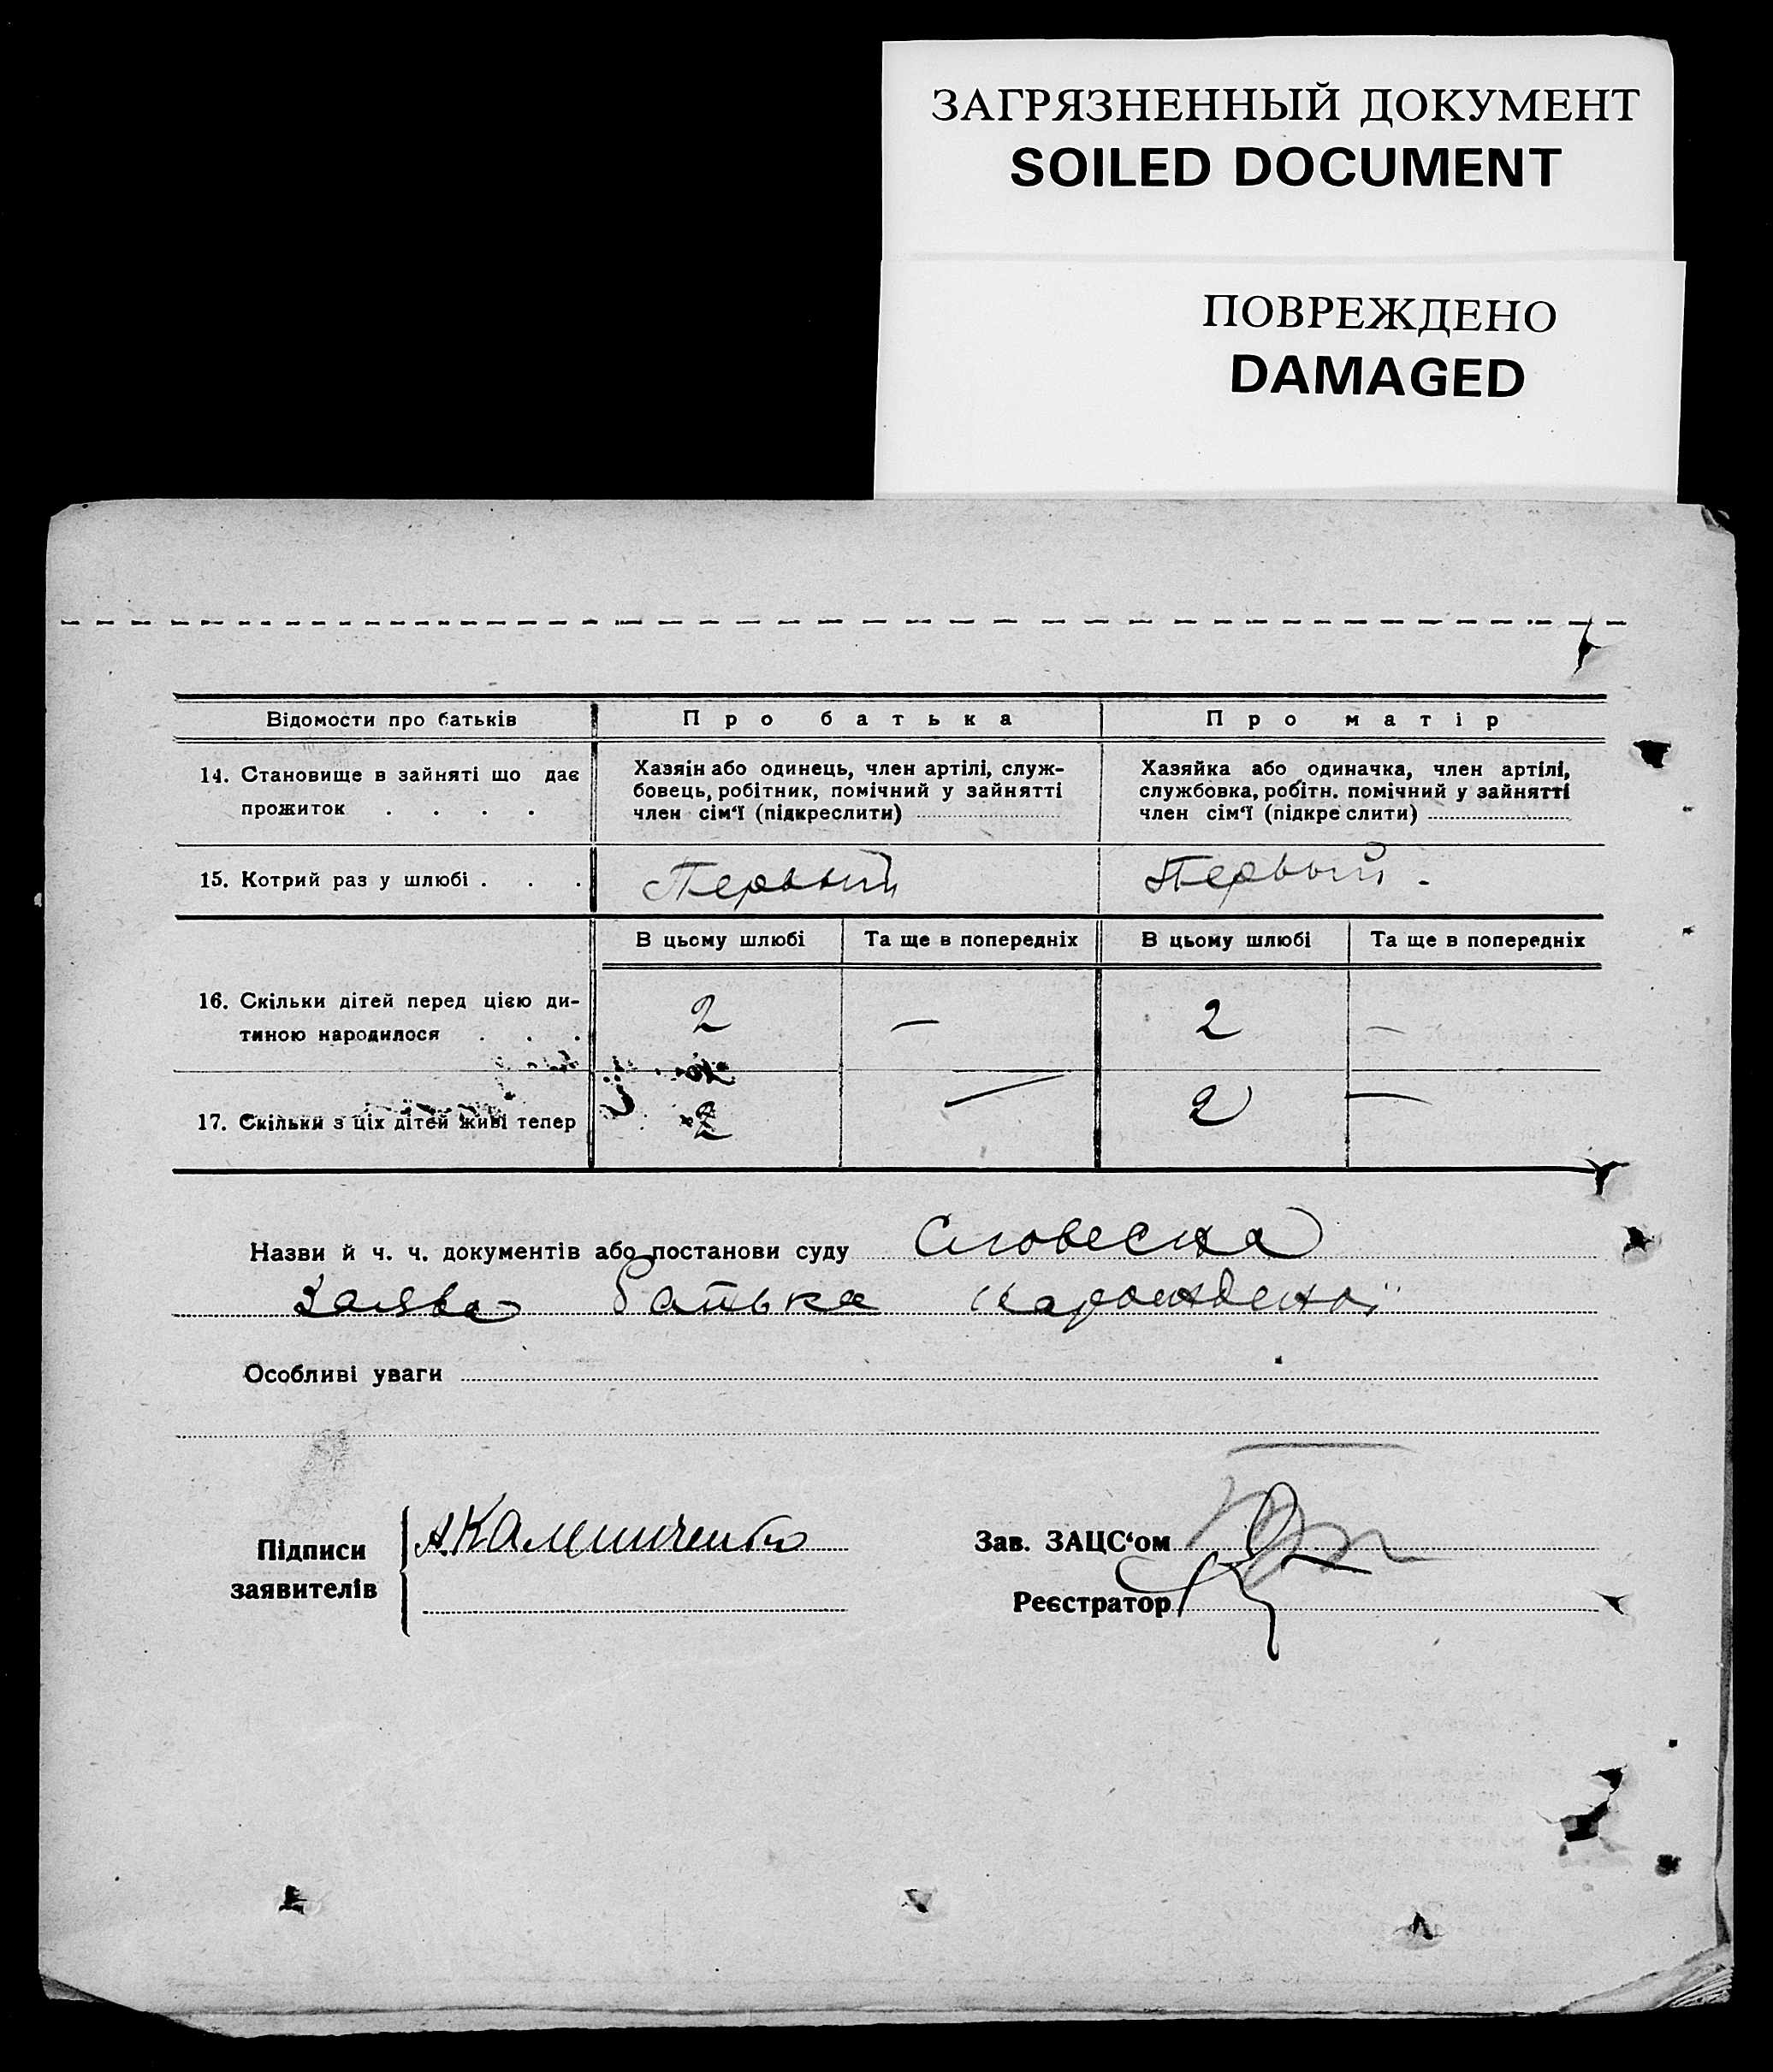 ЗАГРЯЗНЕННЫЙ ДОКУМЕНТ
SOILED DOCUMENT
ПОВРЕЖДЕНО
DAMAGED
Відомости про батьків
Про батька
Про матір
14. Становище в зайняті що дає
прожиток . . . .
Хазяін або одинець, член артілі, служ-
бовець, робітник, помічний у зайнятті
член сім‘ї (підкреслити)
Хазяйка або одиначка, член артілі,
службовка, робітн. помічний у зайнятті
член сім‘ї (підкреслити)
15. Котрий раз у шлюбі . . .
Первый
Первый .
В цьому шлюбі
Та ще в попередніх
В цьому шлюбі
Та ще в попередніх
16. Скільки дітей перед цією ди-
тиною народилося . . .
2
—
2
—
17. Скільки з ціх дітей живі тепер
2
—
2
—
Назви й ч. ч. документів або постанови суду Словесна
Заява батька нарожденої
Особливі уваги
Підписи
заявителів
Зав. ЗАЦС‘ом
Реєстратор